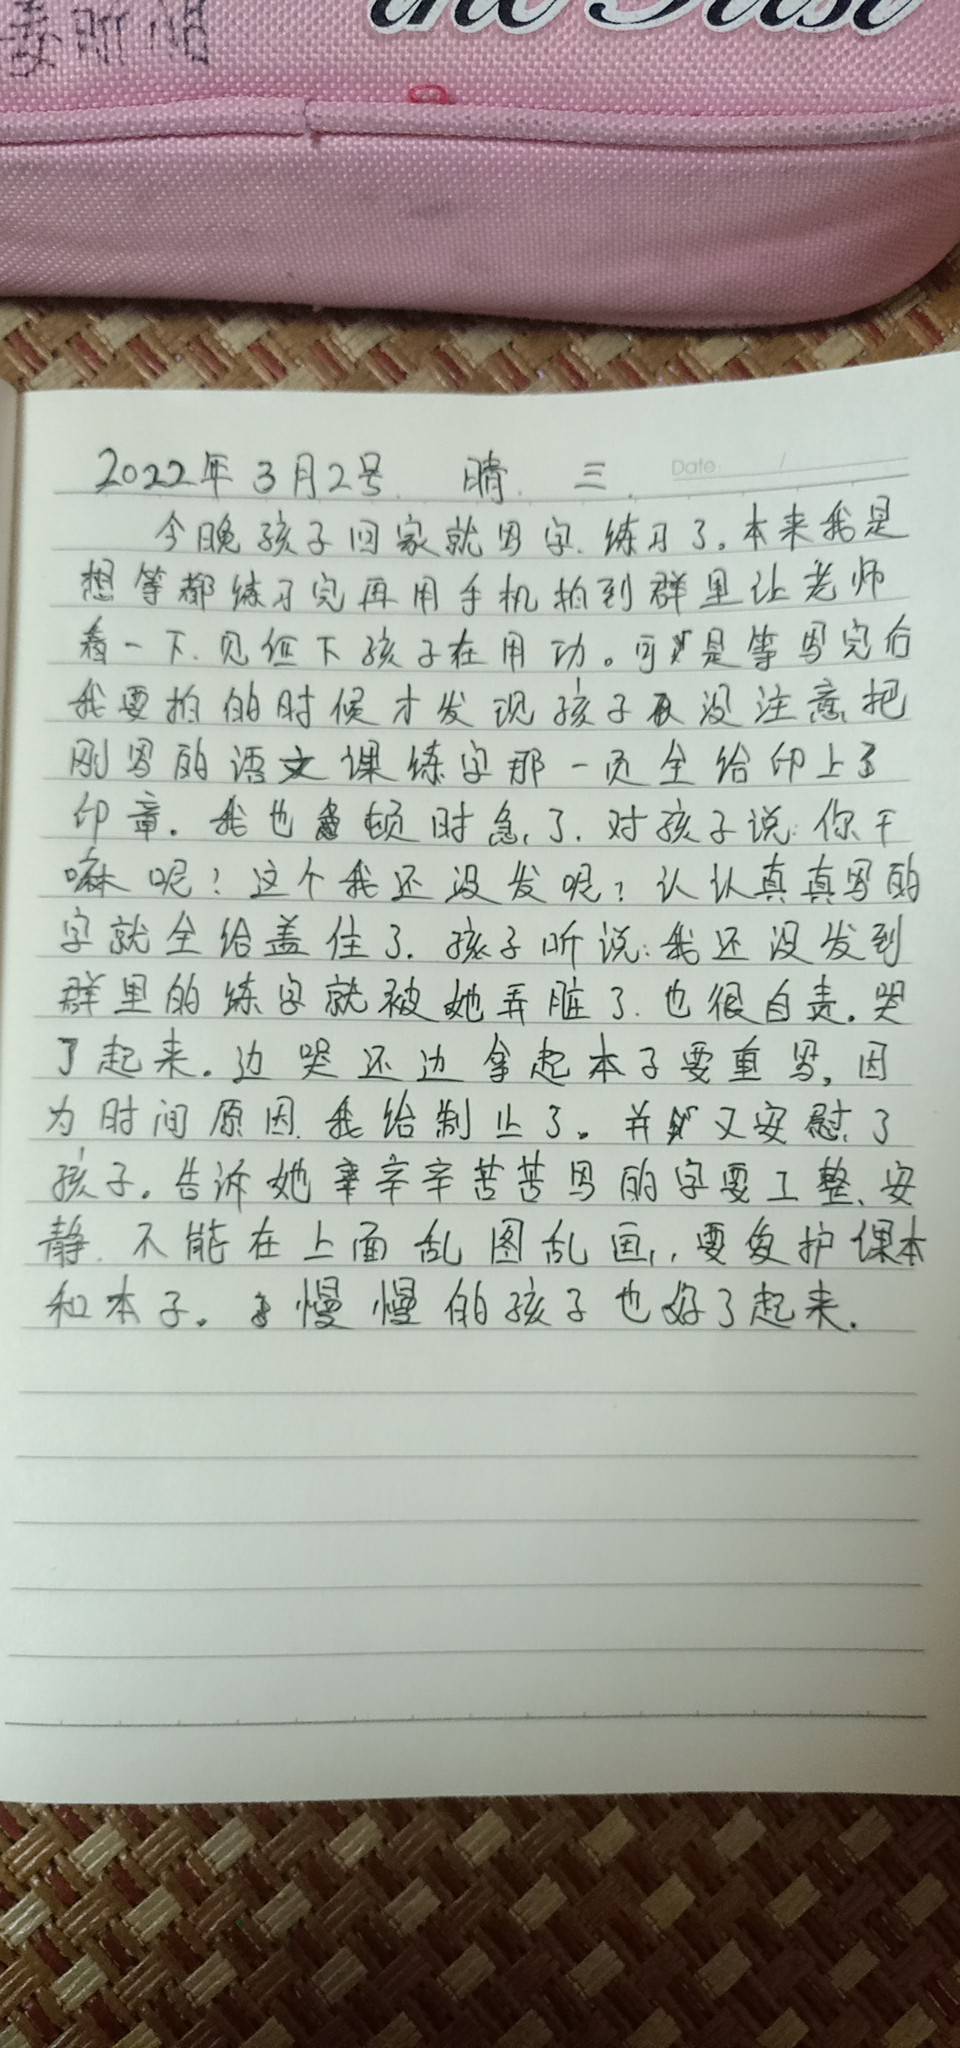 2022年3月2号. 晴. 三.
Date: /
今晚孩子回家就写字.练习了。本来我是
想等都练习完再用手机拍到群里让老师
看一下.见证下孩子在用功。可是等写完后
我要拍的时候才发现孩子没注意,把
刚写的语文课练字那一页全给印上了
印章。我也顿时急了.对孩子说:你干
嘛呢?这个我还没发呢?认认真真写的
字就全给盖住了.孩子听说:我还没发到
群里的练字就被她弄脏了.也很自责。哭
了起来。边哭还边拿起本子要重写,因
为时间原因.我给制止了。并又安慰了
孩子。告诉她辛辛苦苦写的字要工整、安
静.不能在上面乱图乱画,,要爱护课本
和本子。慢慢的孩子也好了起来.